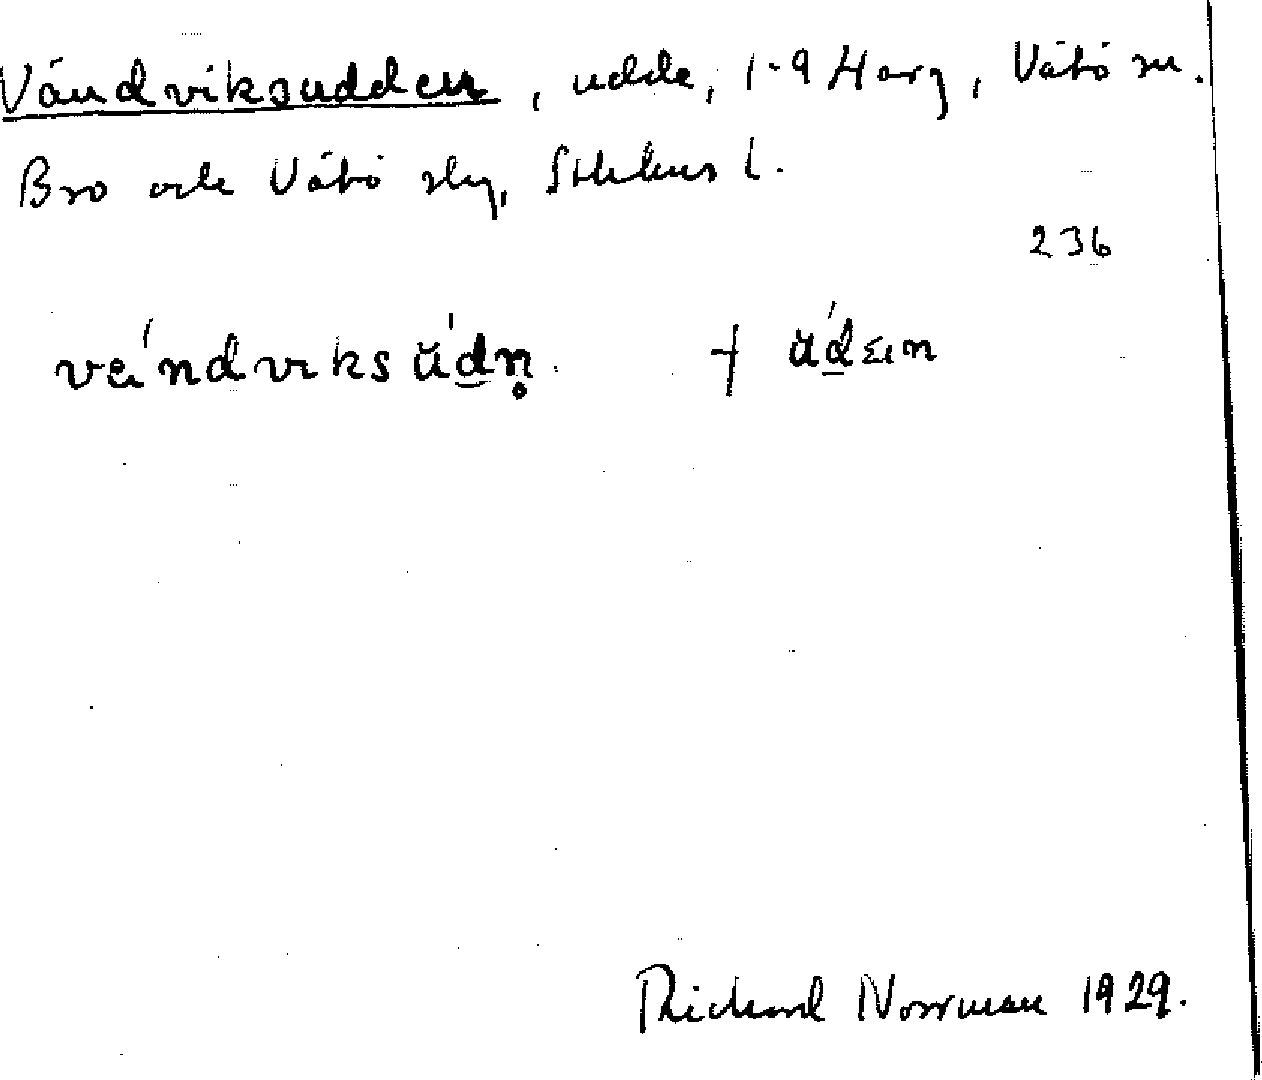 Våndviksudden, udde, 1-9 Harg, Vätö sn.
Bro och Vätö slg, Sthlms l.
236
vándviksŭ́dn̥. + ŭ́dɛn
Richard Norrman 1929.